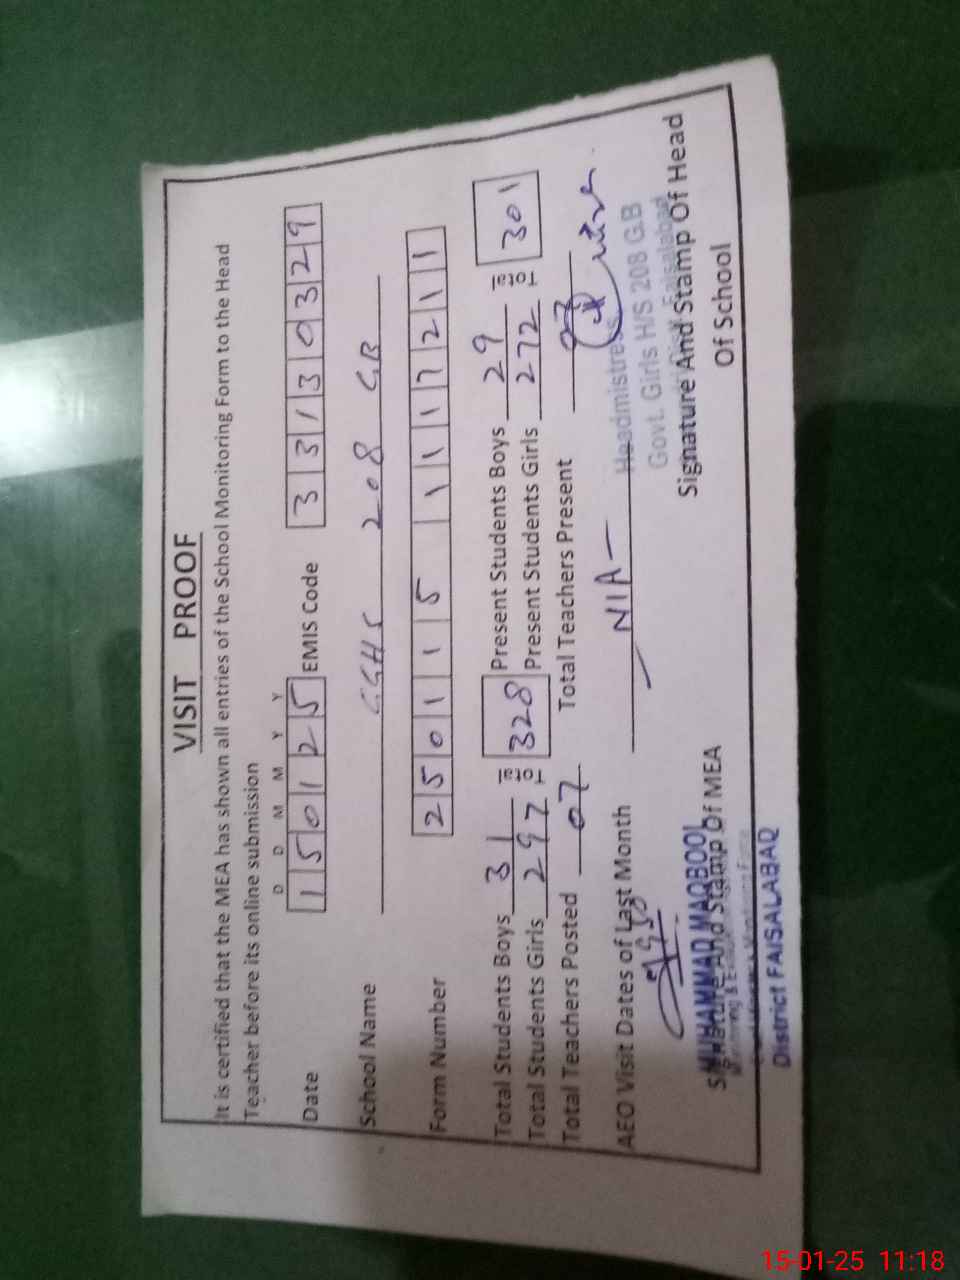 VISIT PROOF
It is certified that the MEA has shown all entries of the School Monitoring Form to the Head
Teacher before its online submission
D D M M Y Y
Date 150125 EMIS Code 33130329
School Name GGHS 208 GB
Form Number 250115 1117211
Total Students Boys 31 Total 328 Present Students Boys 29 Total 301
Total Students Girls 297 Present Students Girls 272
Total Teachers Posted 07 Total Teachers Present 07
AEO Visit Dates of Last Month — N/A —
Headmistress
Govt. Girls H/S 208 G.B
Faisalabad
Signature And Stamp Of MEA
MUHAMMAD MAQBOOL
District FAISALABAD
Signature And Stamp Of Head
Of School
15-01-25 11:18